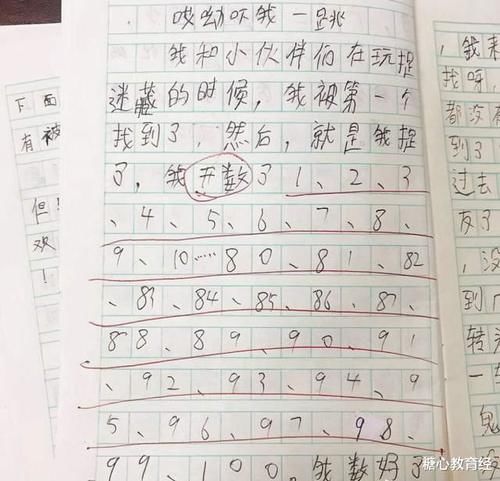 哎呦吓我一跳
我和小伙伴们在玩捉
迷藏的时候，我被第一个
找到了，然后，就是我捉
了，我开数了1、2、3
、4、5、6、7、8、
9、10……80、81、82
、83、84、85、86、87、
88、89、90、91
、92、93、94、9
5、96、97、98、
99、100，我数好了
下面
有被
但！
欢
！
，我来
找呀，
都没有
到了
过去
友了
，没
到
转
一
鬼
糖心教育经